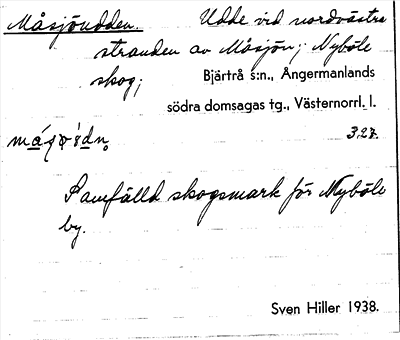 Måsjöudden. Udde vid nordvästra
stranden av Måsjön; Nyböle
skog;
Bjärtrå s:n., Ångermanlands
södra domsagas tg., Västernorrl. l.
327.
Samfälld skogsmark för Nyböle
by.
Sven Hiller 1938.